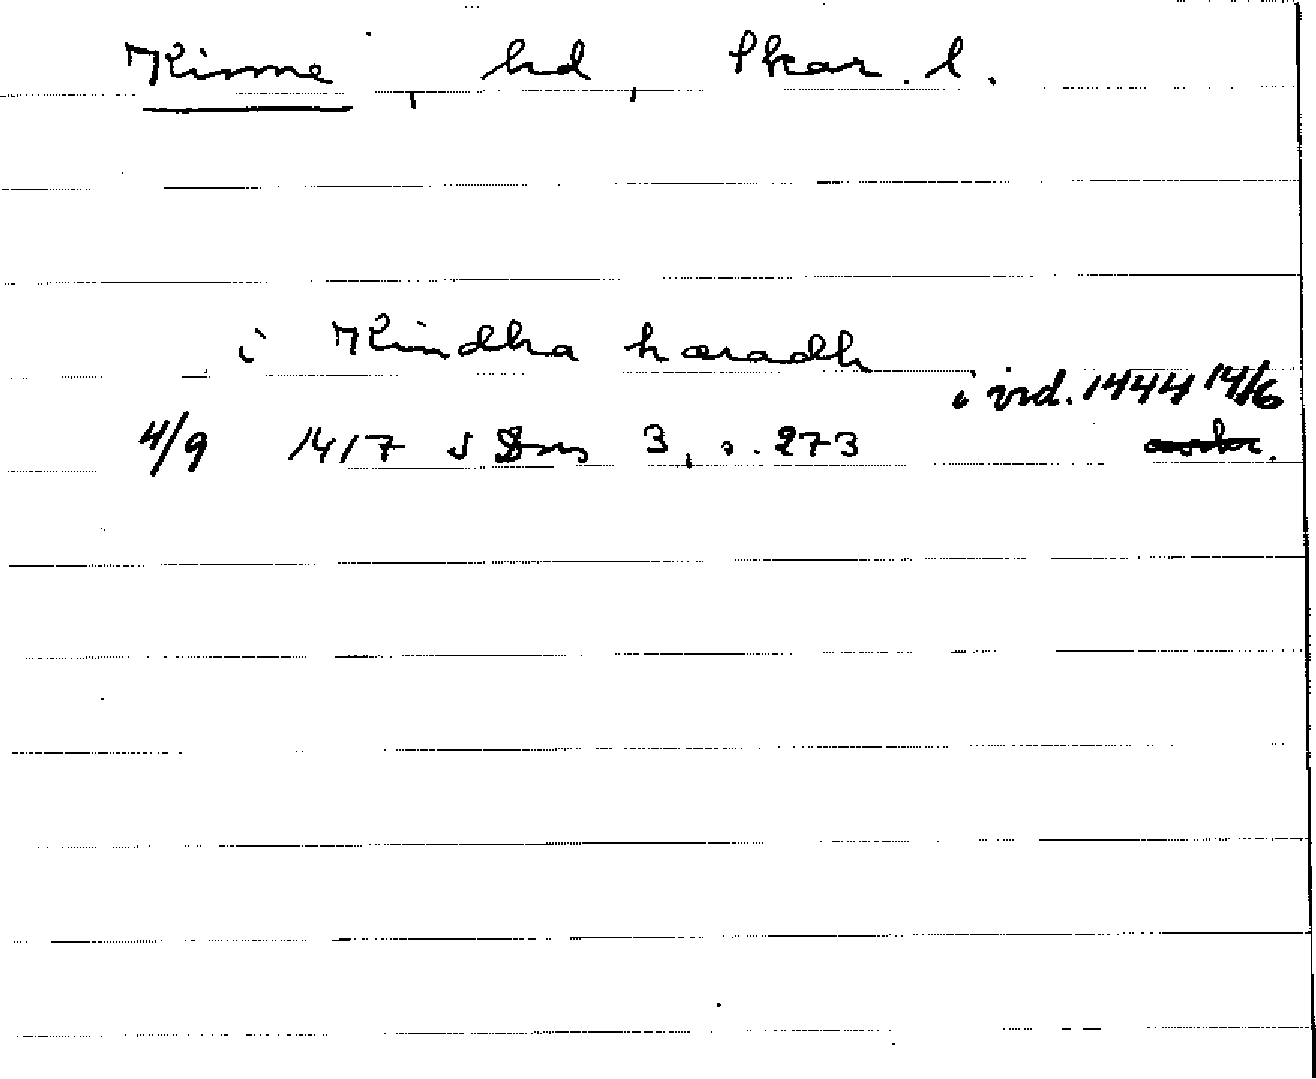 Kinne, hd, Skar. l.
i Kindha haradh
i vid. 1444 14/6
4/9 1417 SDns 3, s. 273
avskr.